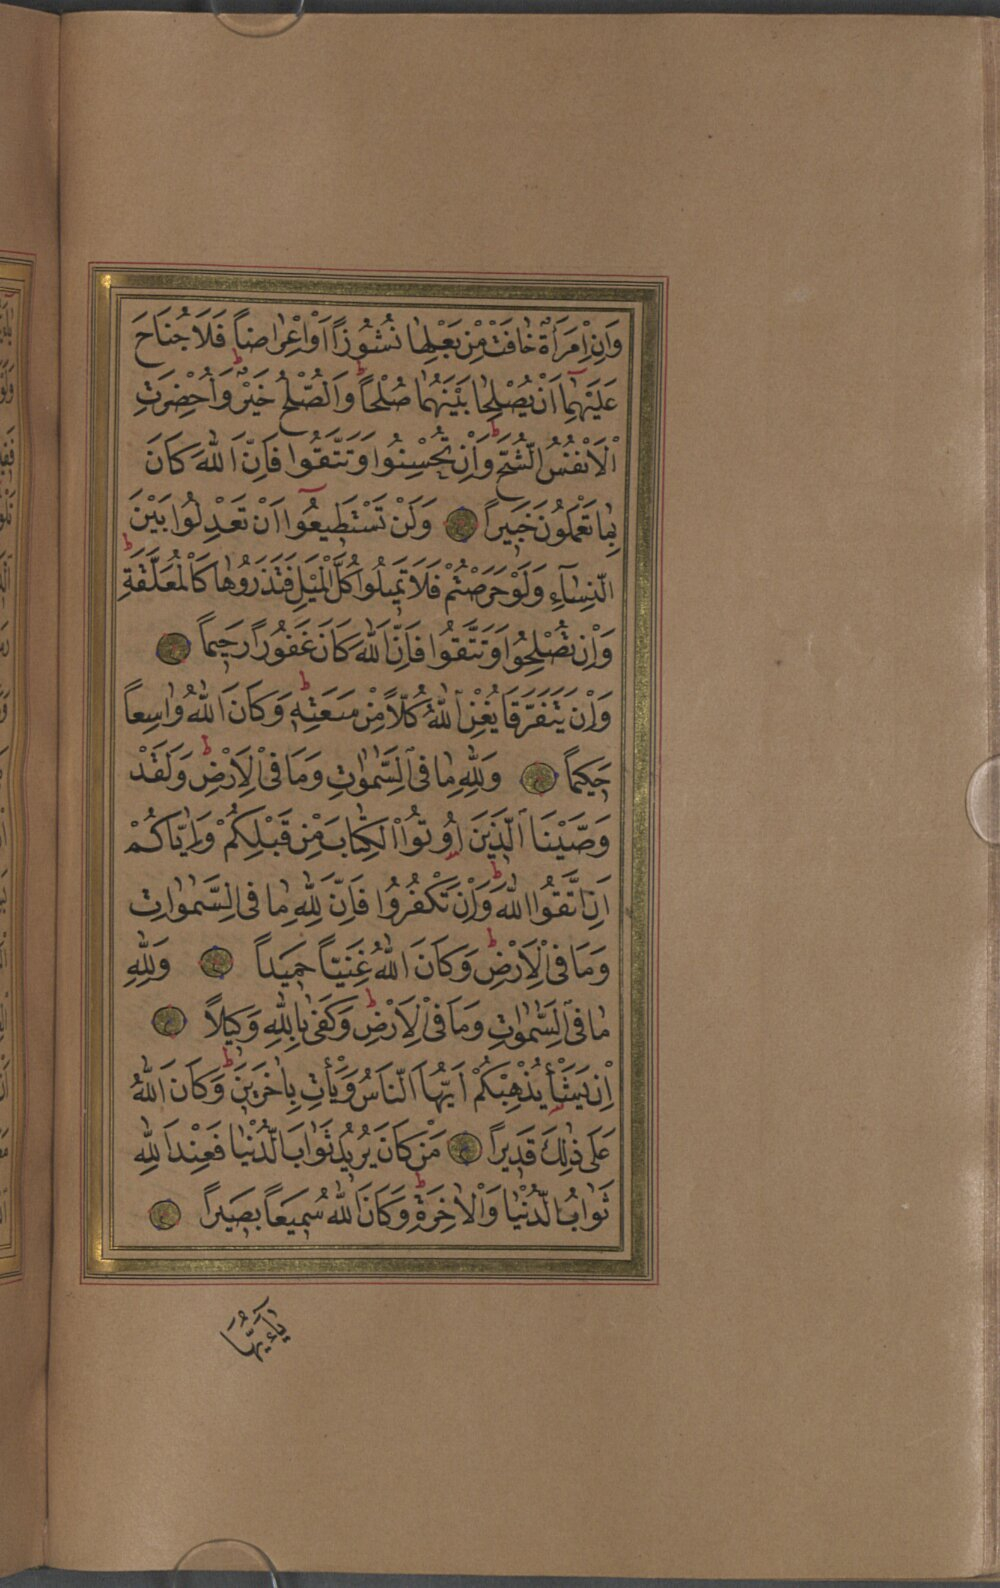 وَاِنِ امْرَاَةٌ خَافَتْ مِنْ بَعْلِهَا نُشُوزًا اَوْ اِعْرَاضًا فَلَا جُنَاحَ
عَلَيْهِمَٓا اَنْ يُصْلِحَا بَيْنَهُمَا صُلْحًاۜ وَالصُّلْحُ خَيْرٌۜ وَاُحْضِرَتِ
الْاَنْفُسُ الشُّحَّۜ وَاِنْ تُحْسِنُوا وَتَتَّقُوا فَاِنَّ اللّٰهَ كَانَ
بِمَا تَعْمَلُونَ خَبِيرًا وَلَنْ تَسْتَطِيعُٓوا اَنْ تَعْدِلُوا بَيْنَ
النِّسَٓاءِ وَلَوْ حَرَصْتُمْ فَلَا تَمِيلُوا كُلَّ الْمَيْلِ فَتَذَرُوهَا كَالْمُعَلَّقَةِۜ
وَاِنْ تُصْلِحُوا وَتَتَّقُوا فَاِنَّ اللّٰهَ كَانَ غَفُورًا رَحِيمًا
وَاِنْ يَتَفَرَّقَا يُغْنِ اللّٰهُ كُلًّا مِنْ سَعَتِهِۜ وَكَانَ اللّٰهُ وَاسِعًا
حَكِيمًا وَلِلّٰهِ مَا فِي السَّمٰوَاتِ وَمَا فِي الْاَرْضِۜ وَلَقَدْ
وَصَّيْنَا الَّذِينَ اُوتُوا الْكِتَابَ مِنْ قَبْلِكُمْ وَاِيَّاكُمْ
اَنِ اتَّقُوا اللّٰهَۜ وَاِنْ تَكْفُرُوا فَاِنَّ لِلّٰهِ مَا فِي السَّمٰوَاتِ
وَمَا فِي الْاَرْضِۜ وَكَانَ اللّٰهُ غَنِيًّا حَمِيدًا وَلِلّٰهِ
مَا فِي السَّمٰوَاتِ وَمَا فِي الْاَرْضِۜ وَكَفٰى بِاللّٰهِ وَكِيلًا
اِنْ يَشَأْ يُذْهِبْكُمْ اَيُّهَا النَّاسُ وَيَأْتِ بِاٰخَرِينَۜ وَكَانَ اللّٰهُ
عَلٰى ذٰلِكَ قَدِيرًا مَنْ كَانَ يُرِيدُ ثَوَابَ الدُّنْيَا فَعِنْدَ اللّٰهِ
ثَوَابُ الدُّنْيَا وَالْاٰخِرَةِۜ وَكَانَ اللّٰهُ سَمِيعًا بَصِيرًا
يَٓا اَيُّهَا